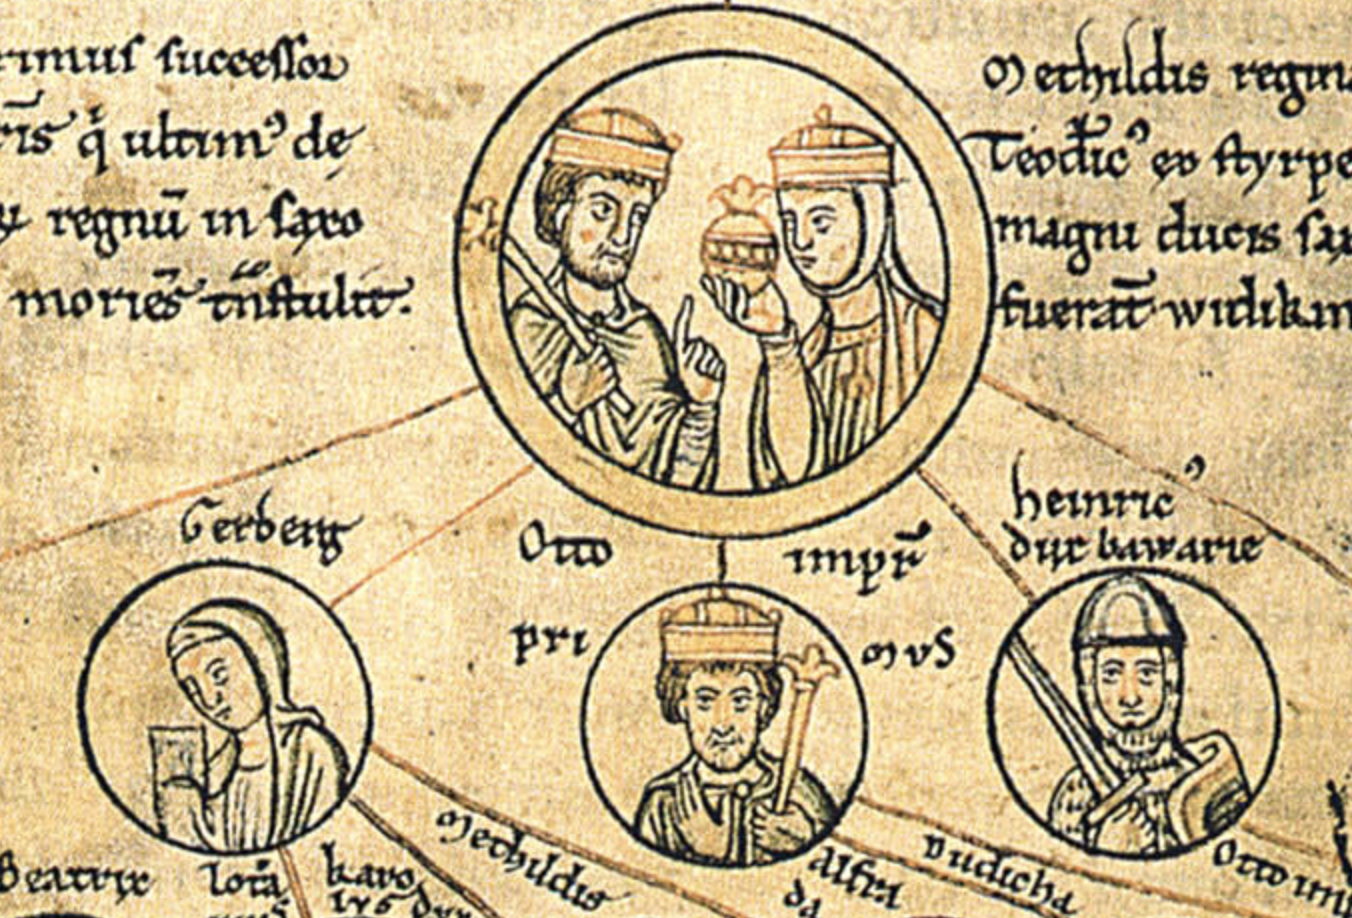 rimus successor
ris q̇ ultim⁹ de
regnū in saxo
moriēs tn̄stulit.
Methildis regina
Teodic⁹ ex styrpe
magni ducis sax
fuerāt widikin
Gerberg
Otto impr̄
pri mus
heinric⁹
dux bawarie
Beatrix
lotā
karo
lus dux
Methildis
Alfri
da
Rudicha
Otto im